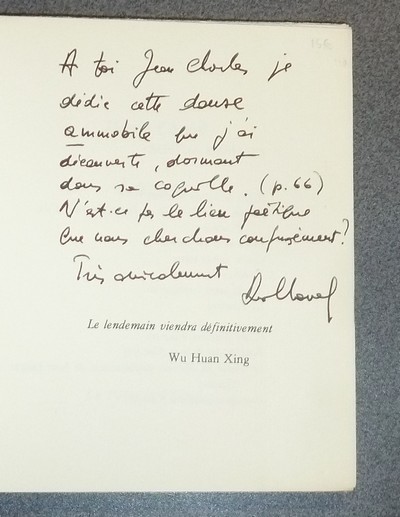 A toi Jean Charles je
dédie cette danse
ammobile que j'ai
découverte, dormant
dans sa coquille. (p.66)
N'est-ce pas le lien poétique
que nous cherchons confusément?
Très amicalement
Le lendemain viendra définitivement
Wu Huan Xing